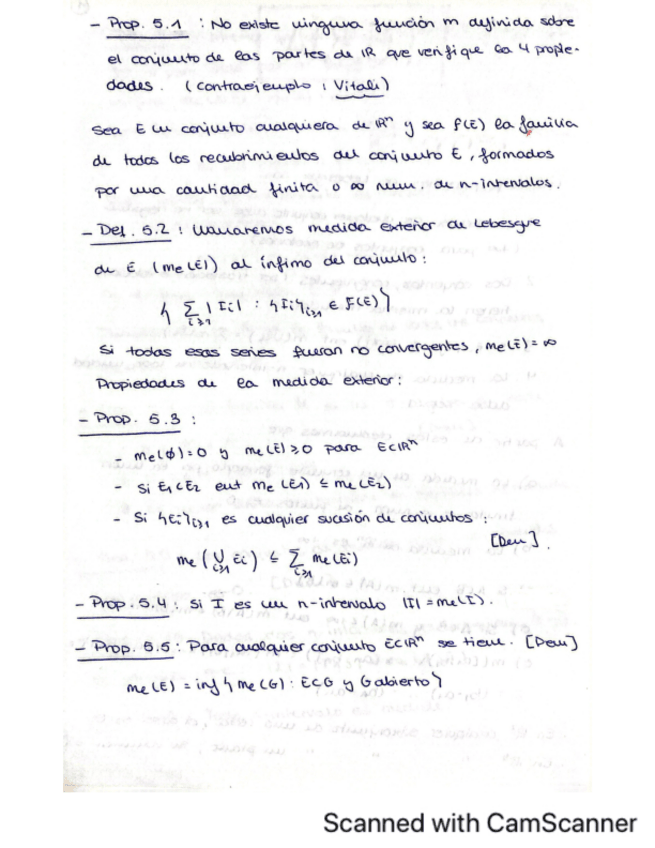 - Prop. 5.1 : No existe ninguna función m definida sobre
el conjunto de las partes de IR que verifique las 4 propie-
dades. (contraejemplo : Vitali)
Sea E un conjunto cualquiera de IRⁿ y sea F(E) la familia
de todos los recubrimientos del conjunto E, formados
por una cantidad finita o ∞ num. de n-intervalos.
- Def. 5.2 : Llamaremos medida exterior de Lebesgue
de E (me(E)) al ínfimo del conjunto :
{ Σ_{i≥1} |Ii| : {Ii}_{i≥1} ∈ F(E) }
Si todas esas series fueran no convergentes, me(E) = ∞
Propiedades de la medida exterior:
- Prop. 5.3 :
- me(∅)=0 y me(E)≥0 para E⊂IRⁿ
- Si E1⊂E2 ent me(E1) ≤ me(E2)
- Si {Ei}_{i≥1} es cualquier sucesión de conjuntos :
[Dem].
me(∪_{i≥1} Ei) ≤ Σ_{i≥1} me(Ei)
- Prop. 5.4 : Si I es un n-intervalo |I| = me(I).
- Prop. 5.5 : Para cualquier conjunto E⊂IRⁿ se tiene. [Dem]
me(E) = inf { me(G) : E⊂G y G abierto }
Scanned with CamScanner